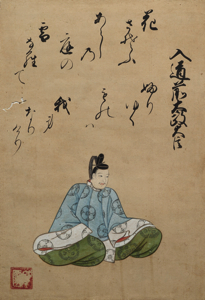 入道前太政大臣
花さそふ
あらし乃
庭の
雪
ならて
ふりゆく
ものハ
我身
なりけり